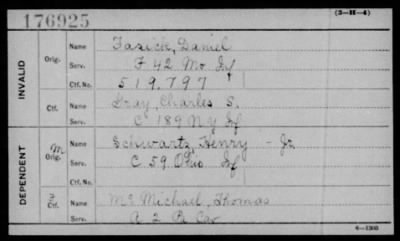 176925
(3-H-4)
INVALID
Orig.
Name Fasick, Daniel
Serv. F 42 Mo Inf
Ctf. No. 519.797
Ctf.
Name Gray, Charles S.
Serv. C 189 N.Y Inf
DEPENDENT
M Orig.
Name Schwartz, Henry - Jr.
Serv. C 59 Ohio Inf
Ctf. No.
Ctf.
Name Mc Michael, Thomas
Serv. A 2 Pa Cav